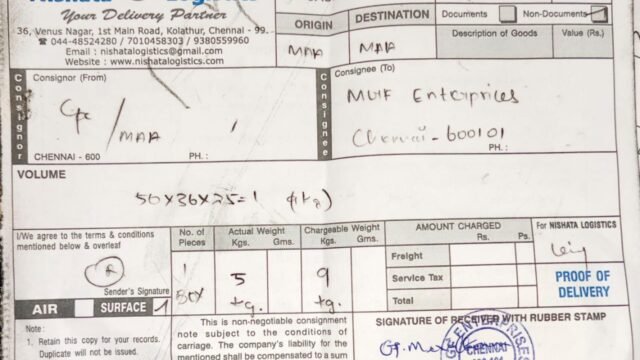 Nishata Logistics
Your Delivery Partner
36, Venus Nagar, 1st Main Road, Kolathur, Chennai - 99.
☎ 044-48524280 / 7010458303 / 9380559960
Email : nishatalogistics@gmail.com
Website : www.nishatalogistics.com
ORIGIN
MAA
DESTINATION
MAA
Documents
Non-Documents
Description of Goods
Value (Rs.)
Consignor
Consignor (From)
Cpc / MAA
CHENNAI - 600
PH. :
Consignee
Consignee (To)
MUF Enterprices
Chennai - 600101
PH. :
VOLUME
50X36X25=1 (9kg)
I/We agree to the terms & conditions
mentioned below & overleaf
Sender's Signature
No. of
Pieces
1
BOX
Actual Weight
Kgs. Gms.
5
kg.
Chargeable Weight
Kgs. Gms.
9
kg.
AMOUNT CHARGED
Rs. Ps.
Freight
Service Tax
Total
For NISHATA LOGISTICS
PROOF OF
DELIVERY
AIR
SURFACE
Note :
1. Retain this copy for your records.
Duplicate will not be issued.
This is non-negotiable consignment
note subject to the conditions of
carriage. The company's liability for the
mentioned shall be compensated to a sum
SIGNATURE OF RECEIVER WITH RUBBER STAMP
ENTERPRISES
CHENNAI